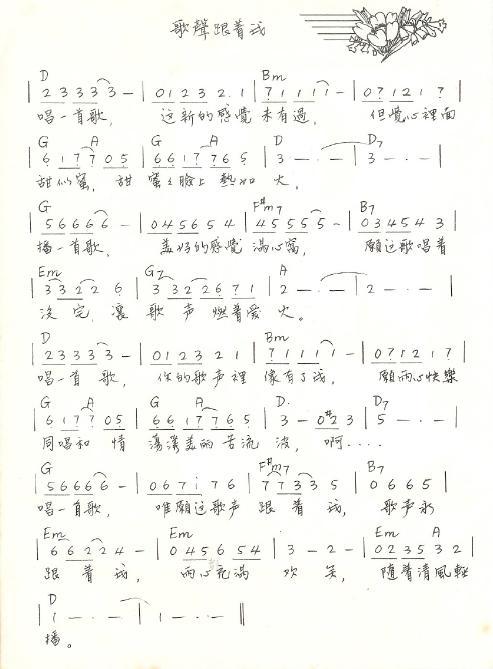 歌聲跟着我
D Bm
| 2 3 3 3 3 3 – | 0 1 2 3 2. 1 | 7 1 1 1 1 – | 0 7 1 2 1 7 |
唱一首歌, 这新的感覺 未有過, 但覺心裡面
G A G A D D7
| 6 1 7 7 0 5 | 6 6 1 7 7 6 5 | 3 – · – | 3 – · – |
甜似蜜, 甜 蜜上臉上 熱如 火,
G F#m7 B7
| 5 6 6 6 6 – | 0 4 5 6 5 4 | 4 5 5 5 5 – | 0 3 4 5 4 3 |
播一首歌, 美好的感覺 滿心窩, 願这歌唱着
Em G7 A
| 3 3 2 2 6 | 3 3 2 2 6 7 1 | 2 – · – | 2 – · – |
没完, 讓 歌声 燃着爱 火。
D Bm
| 2 3 3 3 3 – | 0 1 2 3 2 1 | 7 1 1 1 1 – | 0 7 1 2 1 7 |
唱一首歌, 你的歌声裡 像有了我, 願兩心快樂
G A G A D. D7
| 6 1 7 7 0 5 | 6 6 1 7 7 6 5 | 3 – 0 #2 3 | 5 – · – |
同唱和 情 蕩漾美的 苦流 波, 啊....
G F#m7 B7
| 5 6 6 6 6 – | 0 6 7 1 7 6 | 7 7 3 3 5 | 0 6 6 5 |
唱一首歌, 唯願这歌声 跟着我, 歌声永
Em Em Em A
| 6 6 2 2 4 – | 0 4 5 6 5 4 | 3 – 2 – | 0 2 3 5 3 2 |
跟着我, 兩心充滿 欢笑, 随着清風輕
D
| 1 – · – | 1 – · – ||
播。